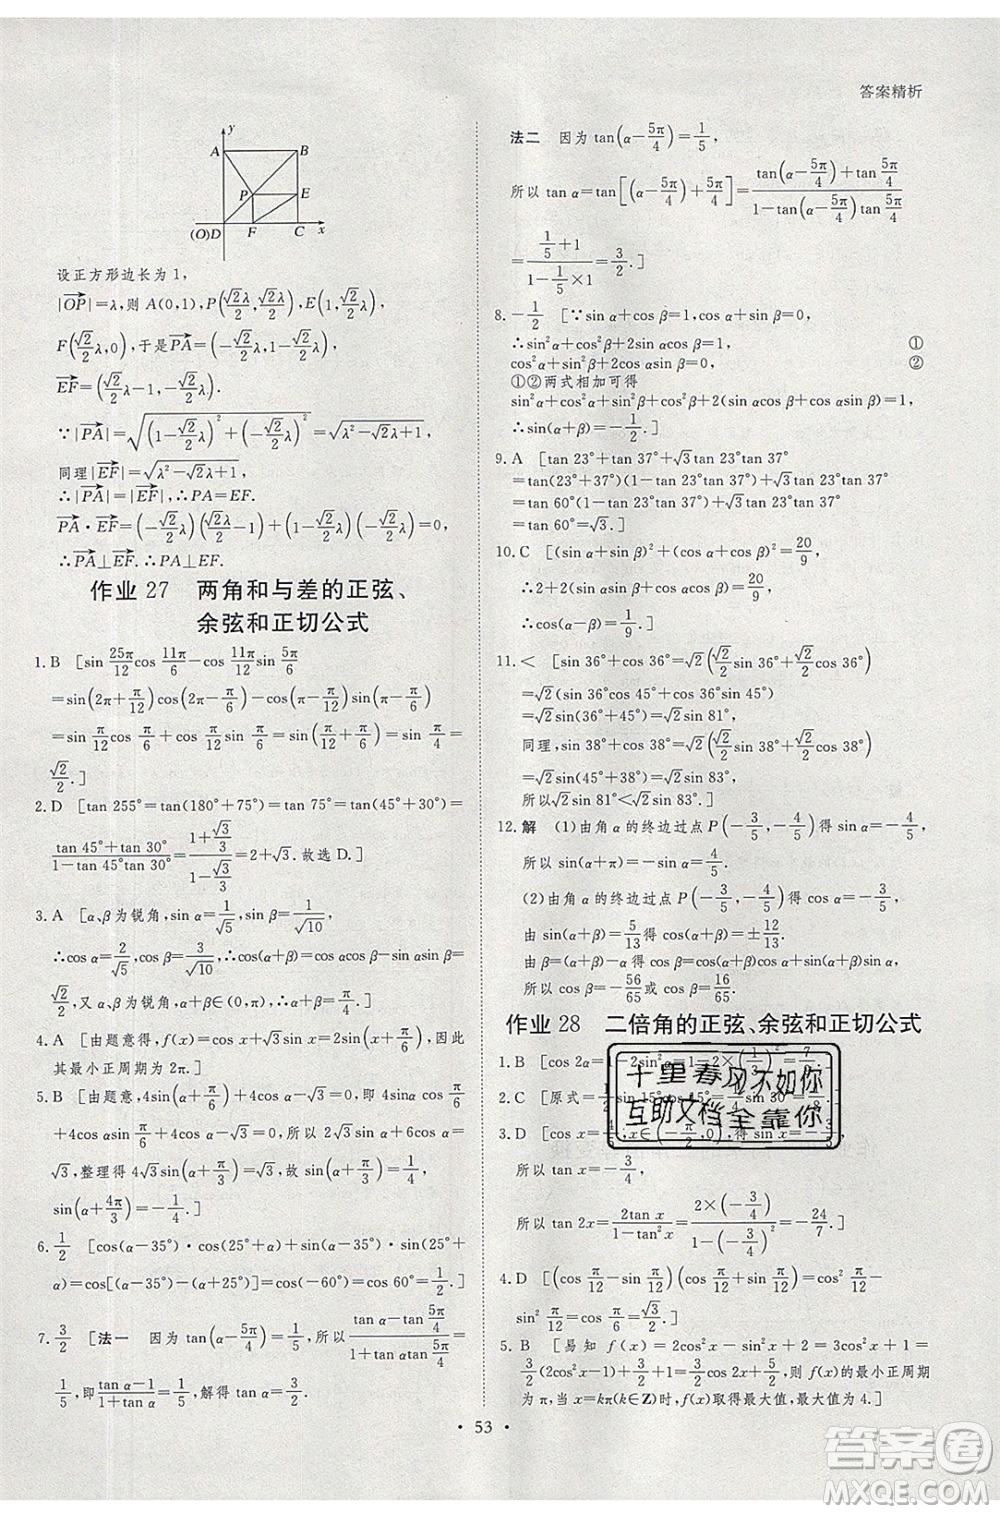 答案精析
y
A
B
P
E
(O)D
F
C
x
设正方形边长为1,
|OP|=λ,则 A(0,1),P(√2/2λ,√2/2λ),E(1,√2/2λ),
F(√2/2λ,0),于是PA=(-√2/2λ,1-√2/2λ),
EF=(√2/2λ-1,-√2/2λ).
∵|PA|=√((1-√2/2λ)²+(-√2/2λ)²)=√(λ²-√2λ+1),
同理|EF|=√(λ²-√2λ+1),
∴|PA|=|EF|,∴PA=EF.
PA·EF=(-√2/2λ)(√2/2λ-1)+(1-√2/2λ)(-√2/2λ)=0,
∴PA⊥EF.∴PA⊥EF.
作业 27 两角和与差的正弦、
余弦和正切公式
1. B [sin 25π/12 cos 11π/6-cos 11π/12 sin 5π/6
=sin(2π+π/12)cos(2π-π/6)-cos(π-π/12)sin(π-π/6)
=sin π/12 cos π/6+cos π/12 sin π/6=sin(π/12+π/6)=sin π/4=
√2/2.]
2. D [tan 255°=tan(180°+75°)=tan 75°=tan(45°+30°)=
(tan 45°+tan 30°)/(1-tan 45°tan 30°)=(1+√3/3)/(1-√3/3)=2+√3.故选 D.]
3. A [α、β为锐角,sin α=1/√5,sin β=1/√10,
∴cos α=2/√5,cos β=3/√10.∴cos(α+β)=cos αcos β-sin αsin β=
√2/2,又 α、β为锐角,∴α+β∈(0,π),∴α+β=π/4.]
4. A [由题意得,f(x)=sin 2x+cos 2x=√2sin(2x+π/4),因此
其最小正周期为 π.]
5. B [由题意,4√3/5=sin(α+π/6)+cos α=sin αcos π/6+
cos αsin π/6+cos α=√3/2sin α+3/2cos α=√3sin(α+π/3)=
4/5√3,所以 sin(α+π/3)=4/5,则 sin(α+4π/3)=sin(π+α+
π/3)=-sin(α+π/3)=-4/5.]
6. 1/2 [cos(α-35°)·cos(25°+α)+sin(α-35°)·sin(25°+
α)=cos[(α-35°)-(α+25°)]=cos(-60°)=cos 60°=1/2.]
7. 3/2 [法一 因为 tan(α-5π/4)=1/5,所以(tan α-tan 5π/4)/(1+tan αtan 5π/4)=
1/5,即(tan α-1)/(1+tan α)=1/5,解得 tan α=3/2.
法二 因为 tan(α-5π/4)=1/5,
所以 tan α=tan[(α-5π/4)+5π/4]=(tan(α-5π/4)+tan 5π/4)/(1-tan(α-5π/4)tan 5π/4)
=(1/5+1)/(1-1/5×1)=3/2.]
8. -1/2 [∵sin α+cos β=1,cos α+sin β=0,
∴sin²α+cos²β+2sin αcos β=1, ①
cos²α+sin²β+2cos αsin β=0, ②
①②两式相加可得
sin²α+cos²α+sin²β+cos²β+2(sin αcos β+cos αsin β)=1,
∴sin(α+β)=-1/2.]
9. A [tan 23°+tan 37°+√3tan 23°tan 37°
=tan(23°+37°)(1-tan 23°tan 37°)+√3tan 23°tan 37°
=tan 60°=√3.]
10. C [(sin α+sin β)²+(cos α+cos β)²=20/9,
∴2+2(cos αcos β+sin αsin β)=20/9.
∴cos(α-β)=1/9.]
11. < [sin 36°+cos 36°=√2(√2/2sin 36°+√2/2cos 36°)
=√2(sin 36°cos 45°+cos 36°sin 45°)
=√2sin(36°+45°)=√2sin 81°,
同理,sin 38°+cos 38°=√2(√2/2sin 38°+√2/2cos 38°)
=√2sin(38°+45°)=√2sin 83°,
所以√2sin 81°<√2sin 83°.]
12. 解 (1)由角 α的终边过点 P(-3/5,-4/5)得 sin α=-4/5,
所以 sin(α+π)=-sin α=4/5.
(2)由角 α的终边过点 P(-3/5,-4/5)得 cos α=-3/5,
由 sin(α+β)=5/13得 cos(α+β)=±12/13.
由 β=(α+β)-α得 cos β=cos(α+β)cos α+sin(α+β)sin α,
所以 cos β=-56/65或 cos β=16/65.
作业 28 二倍角的正弦、余弦和正切公式
1. B [cos 2α=1-2sin²α=1-2×(1/3)²=7/9.]
2. C [原式=1/4sin 15°cos 15°=1/8sin 30°=
3. D [cos x=4/5,x∈(-π/2,0),得 sin x=-3/5,所以 tan x=-3/4,
所以 tan 2x=2tan x/(1-tan²x)=2×(-3/4)/(1-(-3/4)²)=-24/7.]
4. D [(cos π/12-sin π/12)(cos π/12+sin π/12)=cos² π/12-
sin² π/12=cos π/6=√3/2.]
5. B [易知 f(x)=2cos²x-sin²x+2=3cos²x+1=
3/2(2cos²x-1)+3/2+1=3/2cos 2x+5/2,所以 f(x)的最小正周期
为 π,当 x=kπ(k∈Z)时,f(x)取得最大值,最大值为 4.]
十里春风不如你
互助文档全靠你
• 53 •
答案卷
MXQE.COM